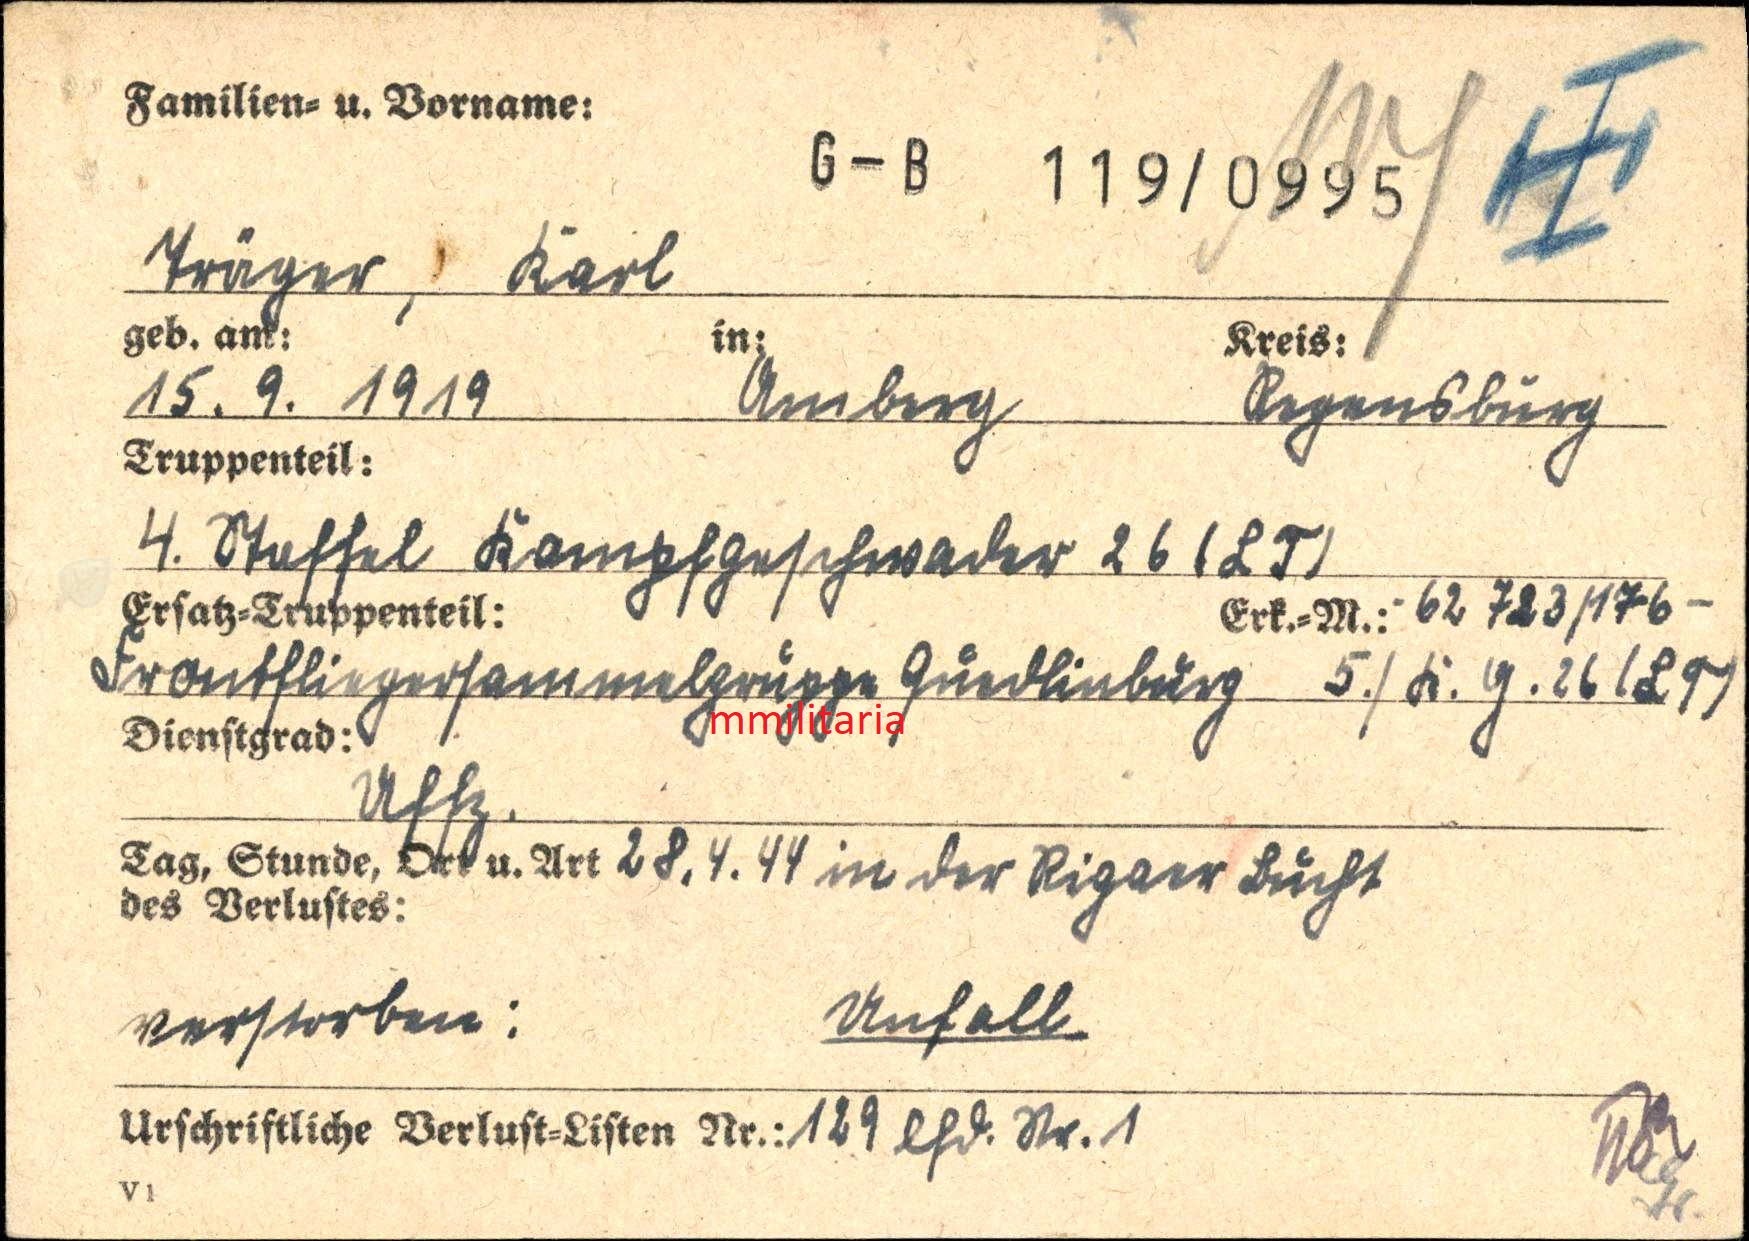 Familien- u. Vorname:
G-B 119/0995
Träger, Karl
geb. am: in: Kreis:
15. 9. 1919 Amberg Regensburg
Truppenteil:
4. Staffel Kampfgeschwader 26 (LT)
Ersatz-Truppenteil: Erk.-M.: - 62 723/176 -
Frontfliegersammelgruppe Quedlinburg 5./K.G.26 (LT)
mmilitaria
Dienstgrad:
Uffz.
Tag, Stunde, Ort u. Art 28.4.44 in der Rigaer Bucht
des Verlustes:
verstorben: Unfall
Urschriftliche Verlust-Listen Nr.: 129 lfd. Nr. 1
V 1